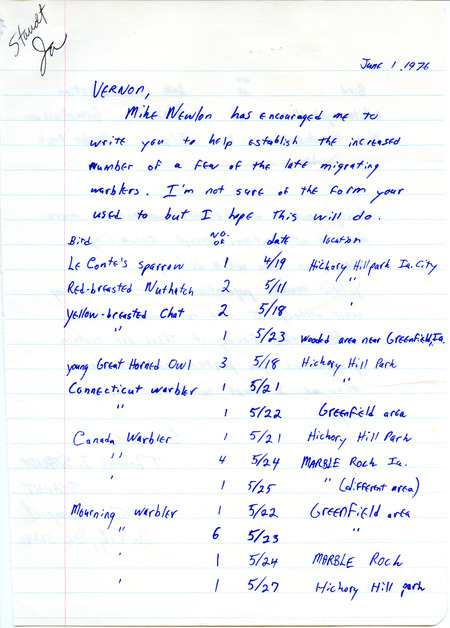 Staudt
Ja
June 1, 1976
Vernon,
Mike Newlon has encouraged me to
write you to help establish the increased
number of a few of the late migrating
warblers. I'm not sure of the form your
used to but I hope this will do.
Bird NO. OF date location
Le Conte's sparrow 1 4/19 Hickory Hill park Ia. City
Red-breasted Nuthatch 2 5/11 "
yellow-breasted Chat 2 5/18 "
" 1 5/23 wooded area near Greenfield, Ia.
young Great Horned Owl 3 5/18 Hickory Hill Park
Connecticut warbler 1 5/21 "
" 1 5/22 Greenfield area
Canada Warbler 1 5/21 Hickory Hill Park
" 4 5/24 MARBLE Rock Ia.
" 1 5/25 " (different area)
Mourning warbler 1 5/22 Greenfield area
" 6 5/23 "
" 1 5/24 MARBLE Rock
" 1 5/27 Hickory Hill park